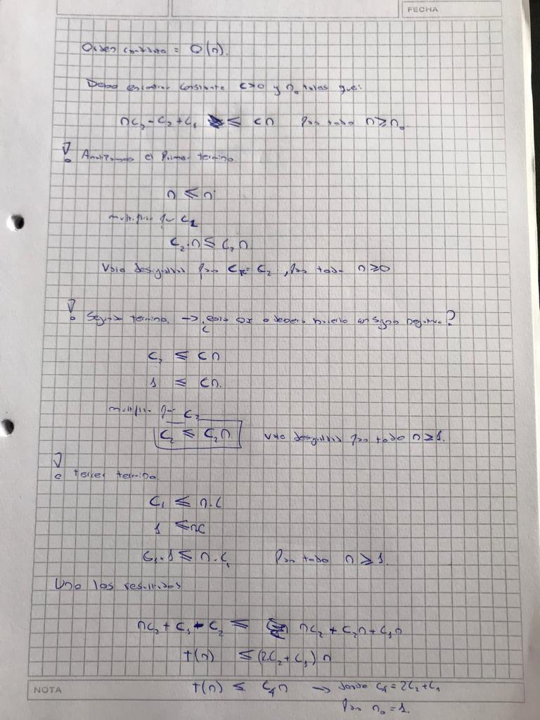 FECHA
Orden = O(n).
Debo encontrar constante c>0 y n₀ tales que:
nC₂ - C₂ + C₁ ≤ cn Para todo n ≥ n₀
Analizando el Primer termino
n ≤ n
multiplico por C₂
C₂.n ≤ C₂n
Vale desigualdad para C₂, para todo n≥0
Segundo termino → ¿esto o debería hacerlo en signo negativo?
C₂ ≤ cn
1 ≤ cn.
multiplico por C₂
C₂ ≤ C₂n vale desigualdad para todo n≥1.
tercer termino
C₁ ≤ n.c
1 ≤ nc
C₁.1 ≤ n.C₁ Para todo n ≥ 1.
Uno los resultados
nC₂ + C₁ - C₂ ≤ nC₂ + C₂n + C₁n
T(n) ≤ (2C₂ + C₁) n
T(n) ≤ C₄n → donde C₄ = 2C₂ + C₁
Para n₀ = 1.
NOTA